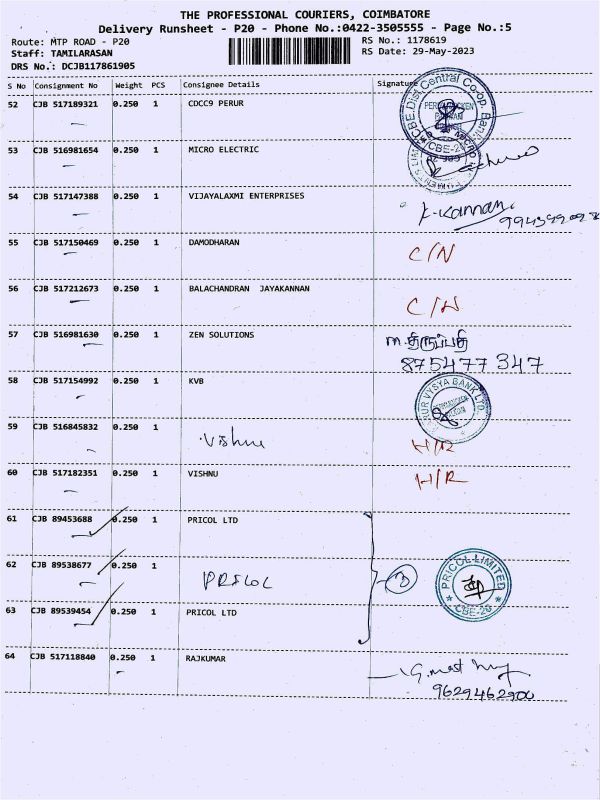 THE PROFESSIONAL COURIERS, COIMBATORE
Delivery Runsheet - P20 - Phone No.:0422-3505555 - Page No.:5
Route: MTP ROAD - P20 RS No.: 1178619
Staff: TAMILARASAN RS Date: 29-May-2023
DRS No.: DCJB117861905
S No Consignment No Weight PCS Consignee Details Signature
52 CJB 517189321 0.250 1 CDCC9 PERUR
53 CJB 516981654 0.250 1 MICRO ELECTRIC
54 CJB 517147388 0.250 1 VIJAYALAXMI ENTERPRISES K-Kannan
55 CJB 517150469 0.250 1 DAMODHARAN C/N
56 CJB 517212673 0.250 1 BALACHANDRAN JAYAKANNAN C/N
57 CJB 516981630 0.250 1 ZEN SOLUTIONS m.திருப்பதி
875477347
58 CJB 517154992 0.250 1 KVB VYSYA BANK LTD.
59 CJB 516845832 0.250 1 Vishnu H/R
60 CJB 517182351 0.250 1 VISHNU H/R
61 CJB 89453688 0.250 1 PRICOL LTD
62 CJB 89538677 0.250 1 PRICOL 3 PRICOL LIMITED CBE-20
63 CJB 89539454 0.250 1 PRICOL LTD
64 CJB 517118840 0.250 1 RAJKUMAR
9629462900